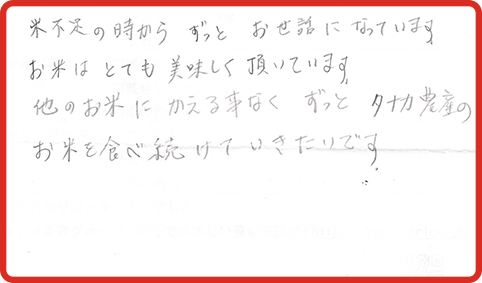 米不足の時から ずっと お世話になっています
お米は とても 美味しく 頂いています
他のお米に かえる事なく ずっと タナカ農産の
お米を食べ続けていきたいです